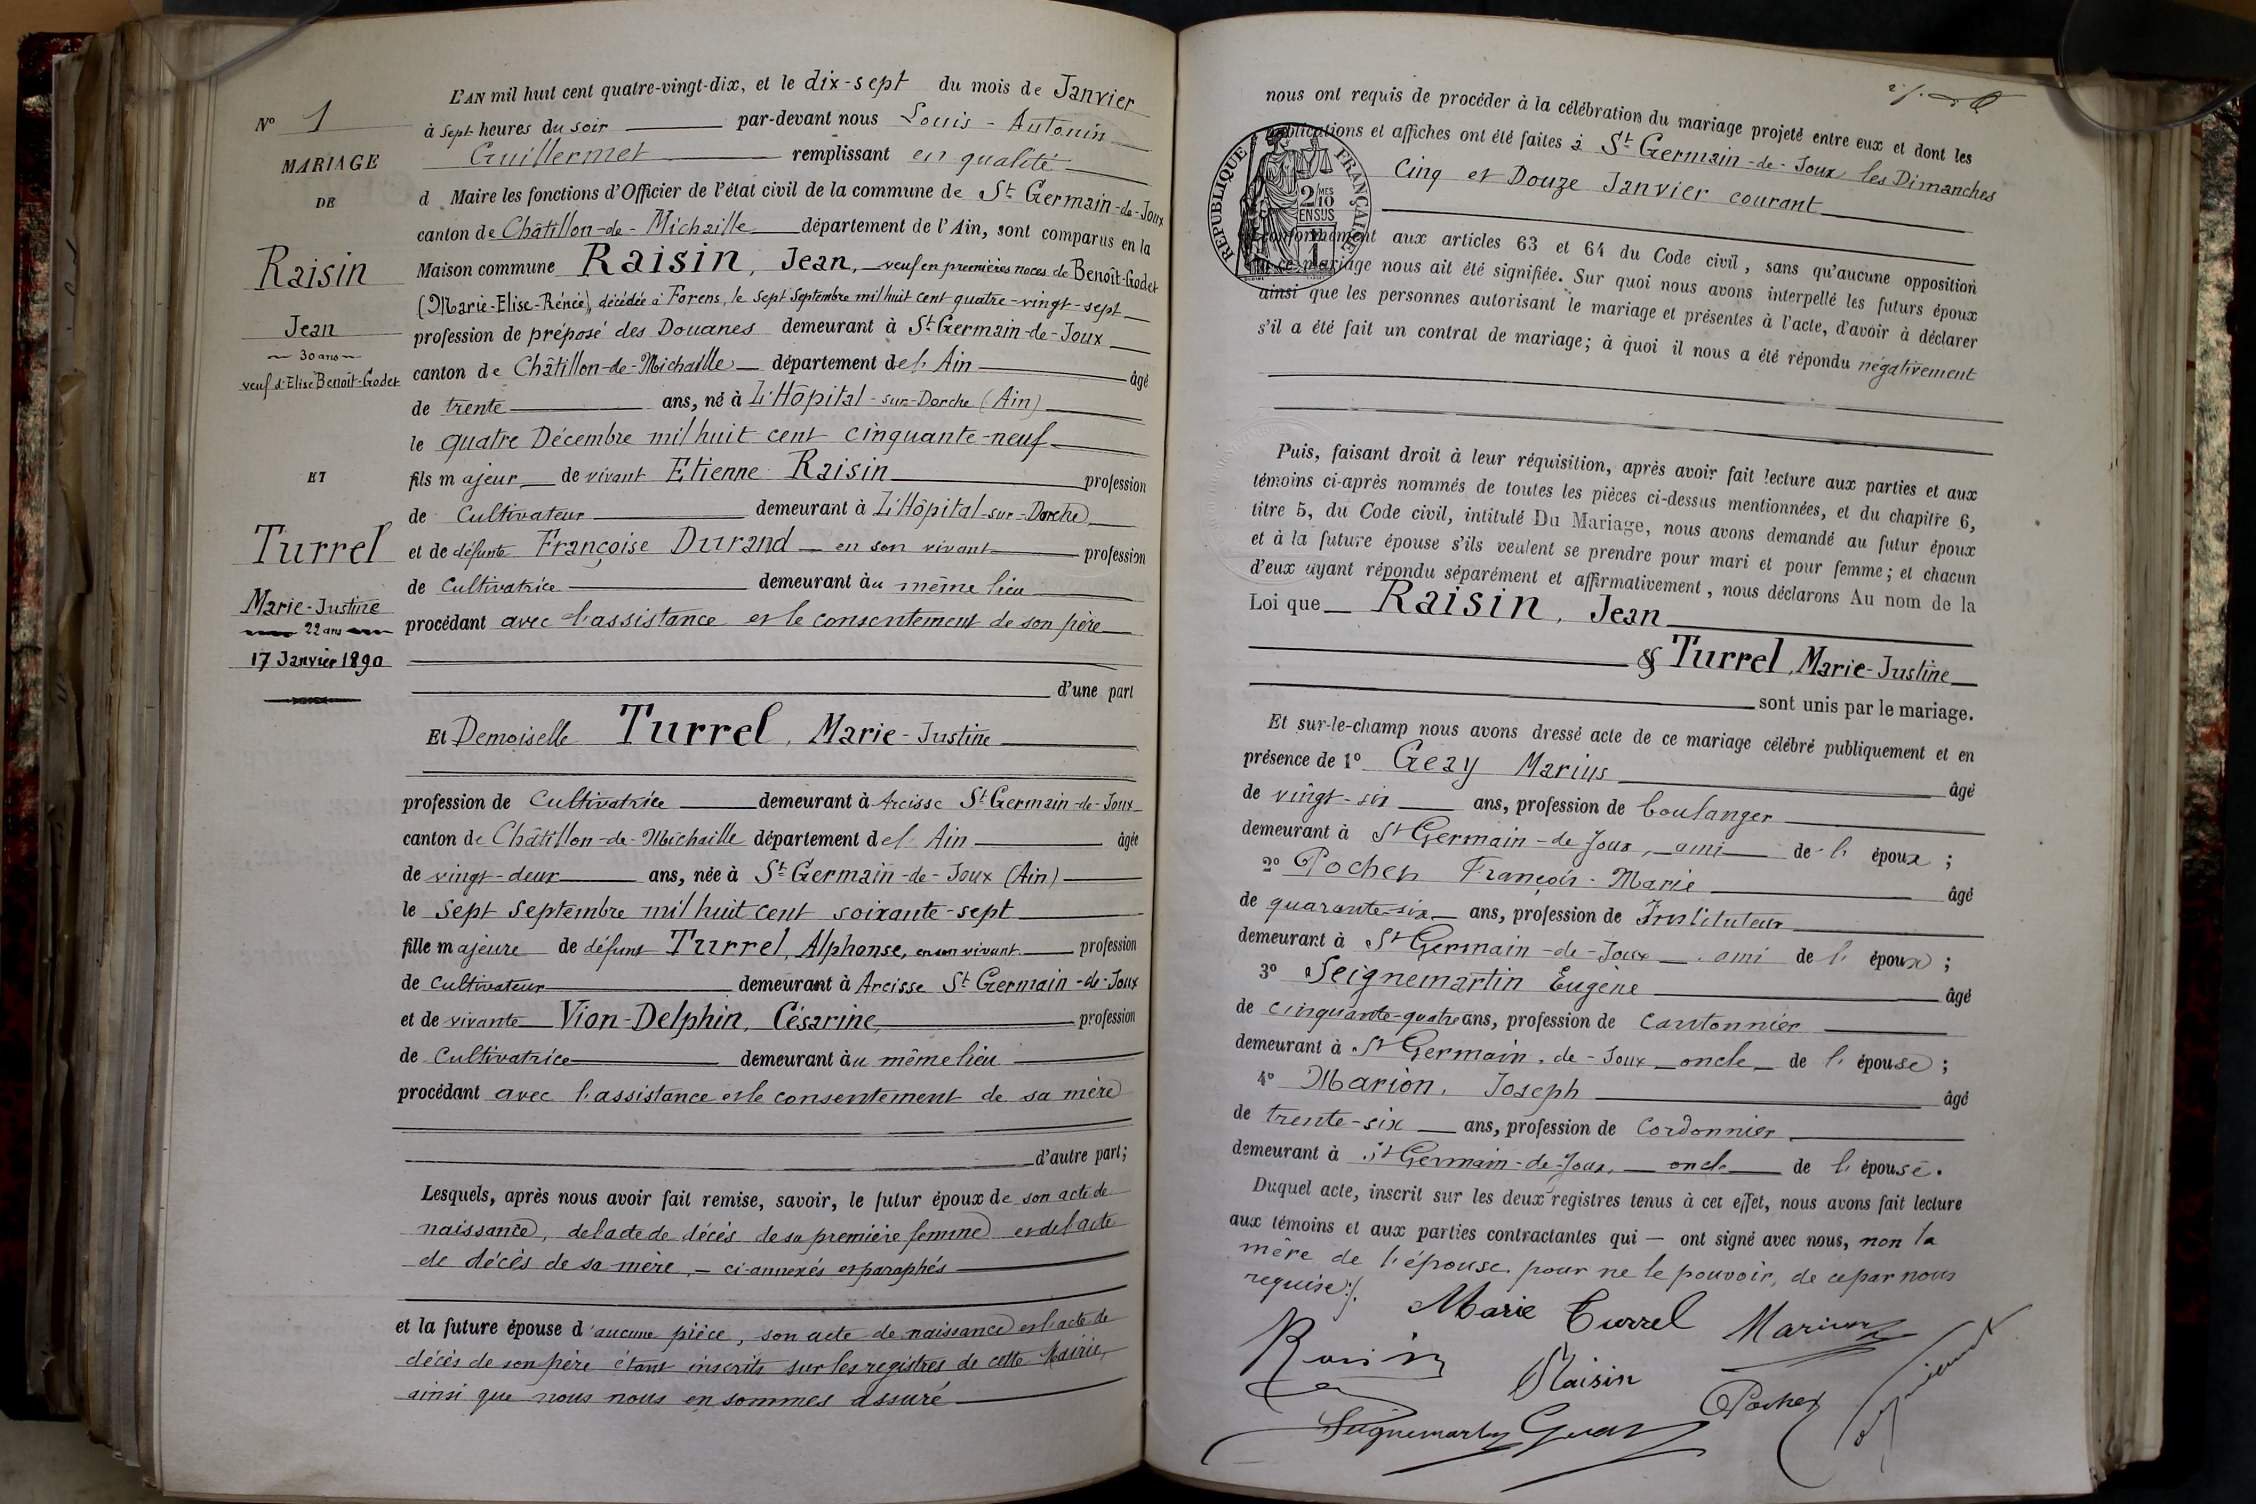 L'AN mil huit cent quatre-vingt-dix, et le dix-sept du mois de Janvier
à sept heures du soir par-devant nous Louis-Antonin
Guillermet remplissant en qualité
d Maire les fonctions d'Officier de l'état civil de la commune de St Germain-de-Joux
canton de Châtillon-de-Michaille département de l'Ain, sont comparus en la
Maison commune Raisin, Jean, veuf en premières noces de Benoit-Godet
(Marie-Elise-Rénée), décédée à Forens, le sept Septembre mil huit cent quatre-vingt-sept
profession de préposé des Douanes demeurant à St Germain-de-Joux
canton de Châtillon-de-Michaille département de l'Ain âgé
de trente ans, né à L'Hôpital-sur-Dorche (Ain)
le quatre Décembre mil huit cent cinquante-neuf
fils majeur de vivant Etienne Raisin profession
de Cultivateur demeurant à L'Hôpital-sur-Dorche
et de défunte Françoise Durand en son vivant profession
de Cultivatrice demeurant au même lieu
procédant avec l'assistance et le consentement de son père
d'une part
Et Demoiselle Turrel, Marie-Justine
profession de Cultivatrice demeurant à Arcisse St Germain-de-Joux
canton de Châtillon-de-Michaille département de l'Ain âgée
de vingt-deux ans, née à St Germain-de-Joux (Ain)
le sept Septembre mil huit cent soixante-sept
fille majeure de défunt Turrel, Alphonse, en son vivant profession
de Cultivateur demeurant à Arcisse St Germain-de-Joux
et de vivante Vion-Delphin, Césarine, profession
de Cultivatrice demeurant au même lieu
procédant avec l'assistance et le consentement de sa mère
d'autre part;
Lesquels, après nous avoir fait remise, savoir, le futur époux de son acte de
naissance, de l'acte de décès de sa première femme et de l'acte
de décès de sa mère, — ci-annexés et paraphés
et la future épouse d'aucune pièce, son acte de naissance et l'acte de
décès de son père étant inscrits sur les registres de cette Mairie,
ainsi que nous nous en sommes assuré
No 1
MARIAGE
DE
Raisin
Jean
30 ans
veuf d'Elise Benoit-Godet
ET
Turrel
Marie-Justine
22 ans
17 Janvier 1890
nous ont requis de procéder à la célébration du mariage projeté entre eux et dont les
publications et affiches ont été faites à St Germain-de-Joux les Dimanches
Cinq et Douze Janvier courant
conformément aux articles 63 et 64 du Code civil, sans qu'aucune opposition
à ce mariage nous ait été signifiée. Sur quoi nous avons interpellé les futurs époux
ainsi que les personnes autorisant le mariage et présentes à l'acte, d'avoir à déclarer
s'il a été fait un contrat de mariage; à quoi il nous a été répondu négativement
RÉPUBLIQUE FRANÇAISE
2/MES
10
EN SUS
1
Puis, faisant droit à leur réquisition, après avoir fait lecture aux parties et aux
témoins ci-après nommés de toutes les pièces ci-dessus mentionnées, et du chapitre 6,
titre 5, du Code civil, intitulé Du Mariage, nous avons demandé au futur époux
et à la future épouse s'ils veulent se prendre pour mari et pour femme; et chacun
d'eux ayant répondu séparément et affirmativement, nous déclarons Au nom de la
Loi que Raisin, Jean
& Turrel, Marie-Justine
sont unis par le mariage.
Et sur-le-champ nous avons dressé acte de ce mariage célébré publiquement et en
présence de 1o Geay Marius âgé
de vingt-six ans, profession de boulanger
demeurant à St Germain-de-Joux, ami de l'époux;
2o Pochet François-Marie âgé
de quarante-six ans, profession de Instituteur
demeurant à St Germain-de-Joux ami de l'époux;
3o Seignemartin Eugène âgé
de cinquante-quatre ans, profession de cantonnier
demeurant à St Germain-de-Joux oncle de l'épouse;
4o Marion, Joseph âgé
de trente-six ans, profession de Cordonnier
demeurant à St Germain-de-Joux, oncle de l'épouse.
Duquel acte, inscrit sur les deux registres tenus à cet effet, nous avons fait lecture
aux témoins et aux parties contractantes qui — ont signé avec nous, non la
mère de l'épouse pour ne le pouvoir, de ce par nous
requise./.
Marie Turrel Marion
Raisin Raisin
Pochet
Seignemartin Geay